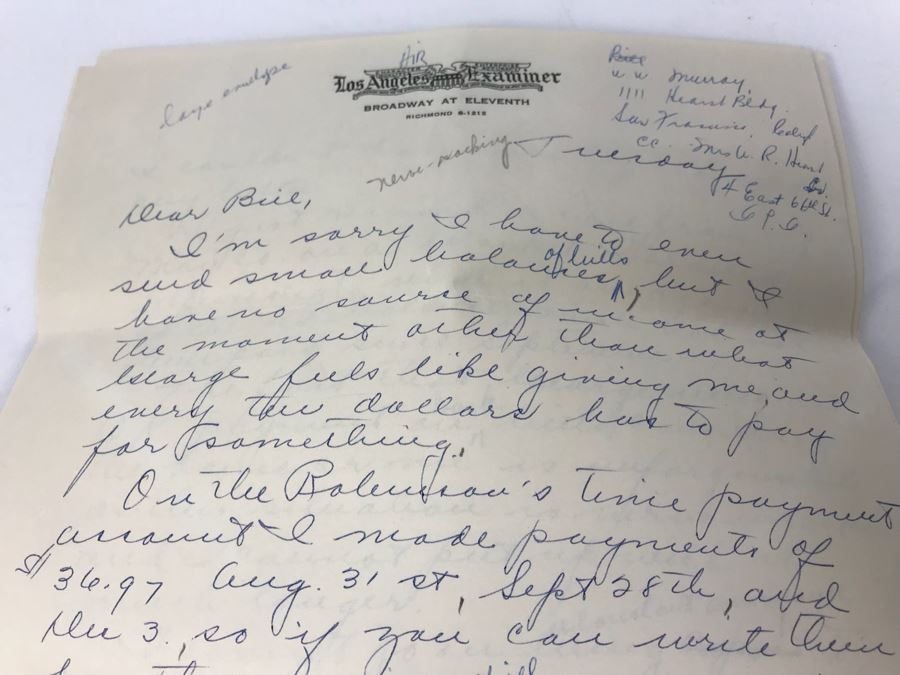 large envelope
AIR
Los Angeles Examiner
BROADWAY AT ELEVENTH
RICHMOND 8-1212
Bill
W W Murray
1111 Hearst Bldg.
San Francisco,
CC. Mrs W. R. Hearst
4 East 66th St.
nerve-racking
Tuesday
Dear Bill,
I'm sorry I have to even
send small balances of bills, but I
have no source of income at
the moment other than what
George feels like giving me, and
every ten dollars has to pay
for something.
On the Robinson's time payment
account I made payments of
$36.97 Aug. 31st, Sept 28th, and
Dec 3, so if you can write them